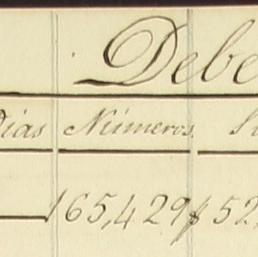 Debe
Dias Números
165,429 $ 52,